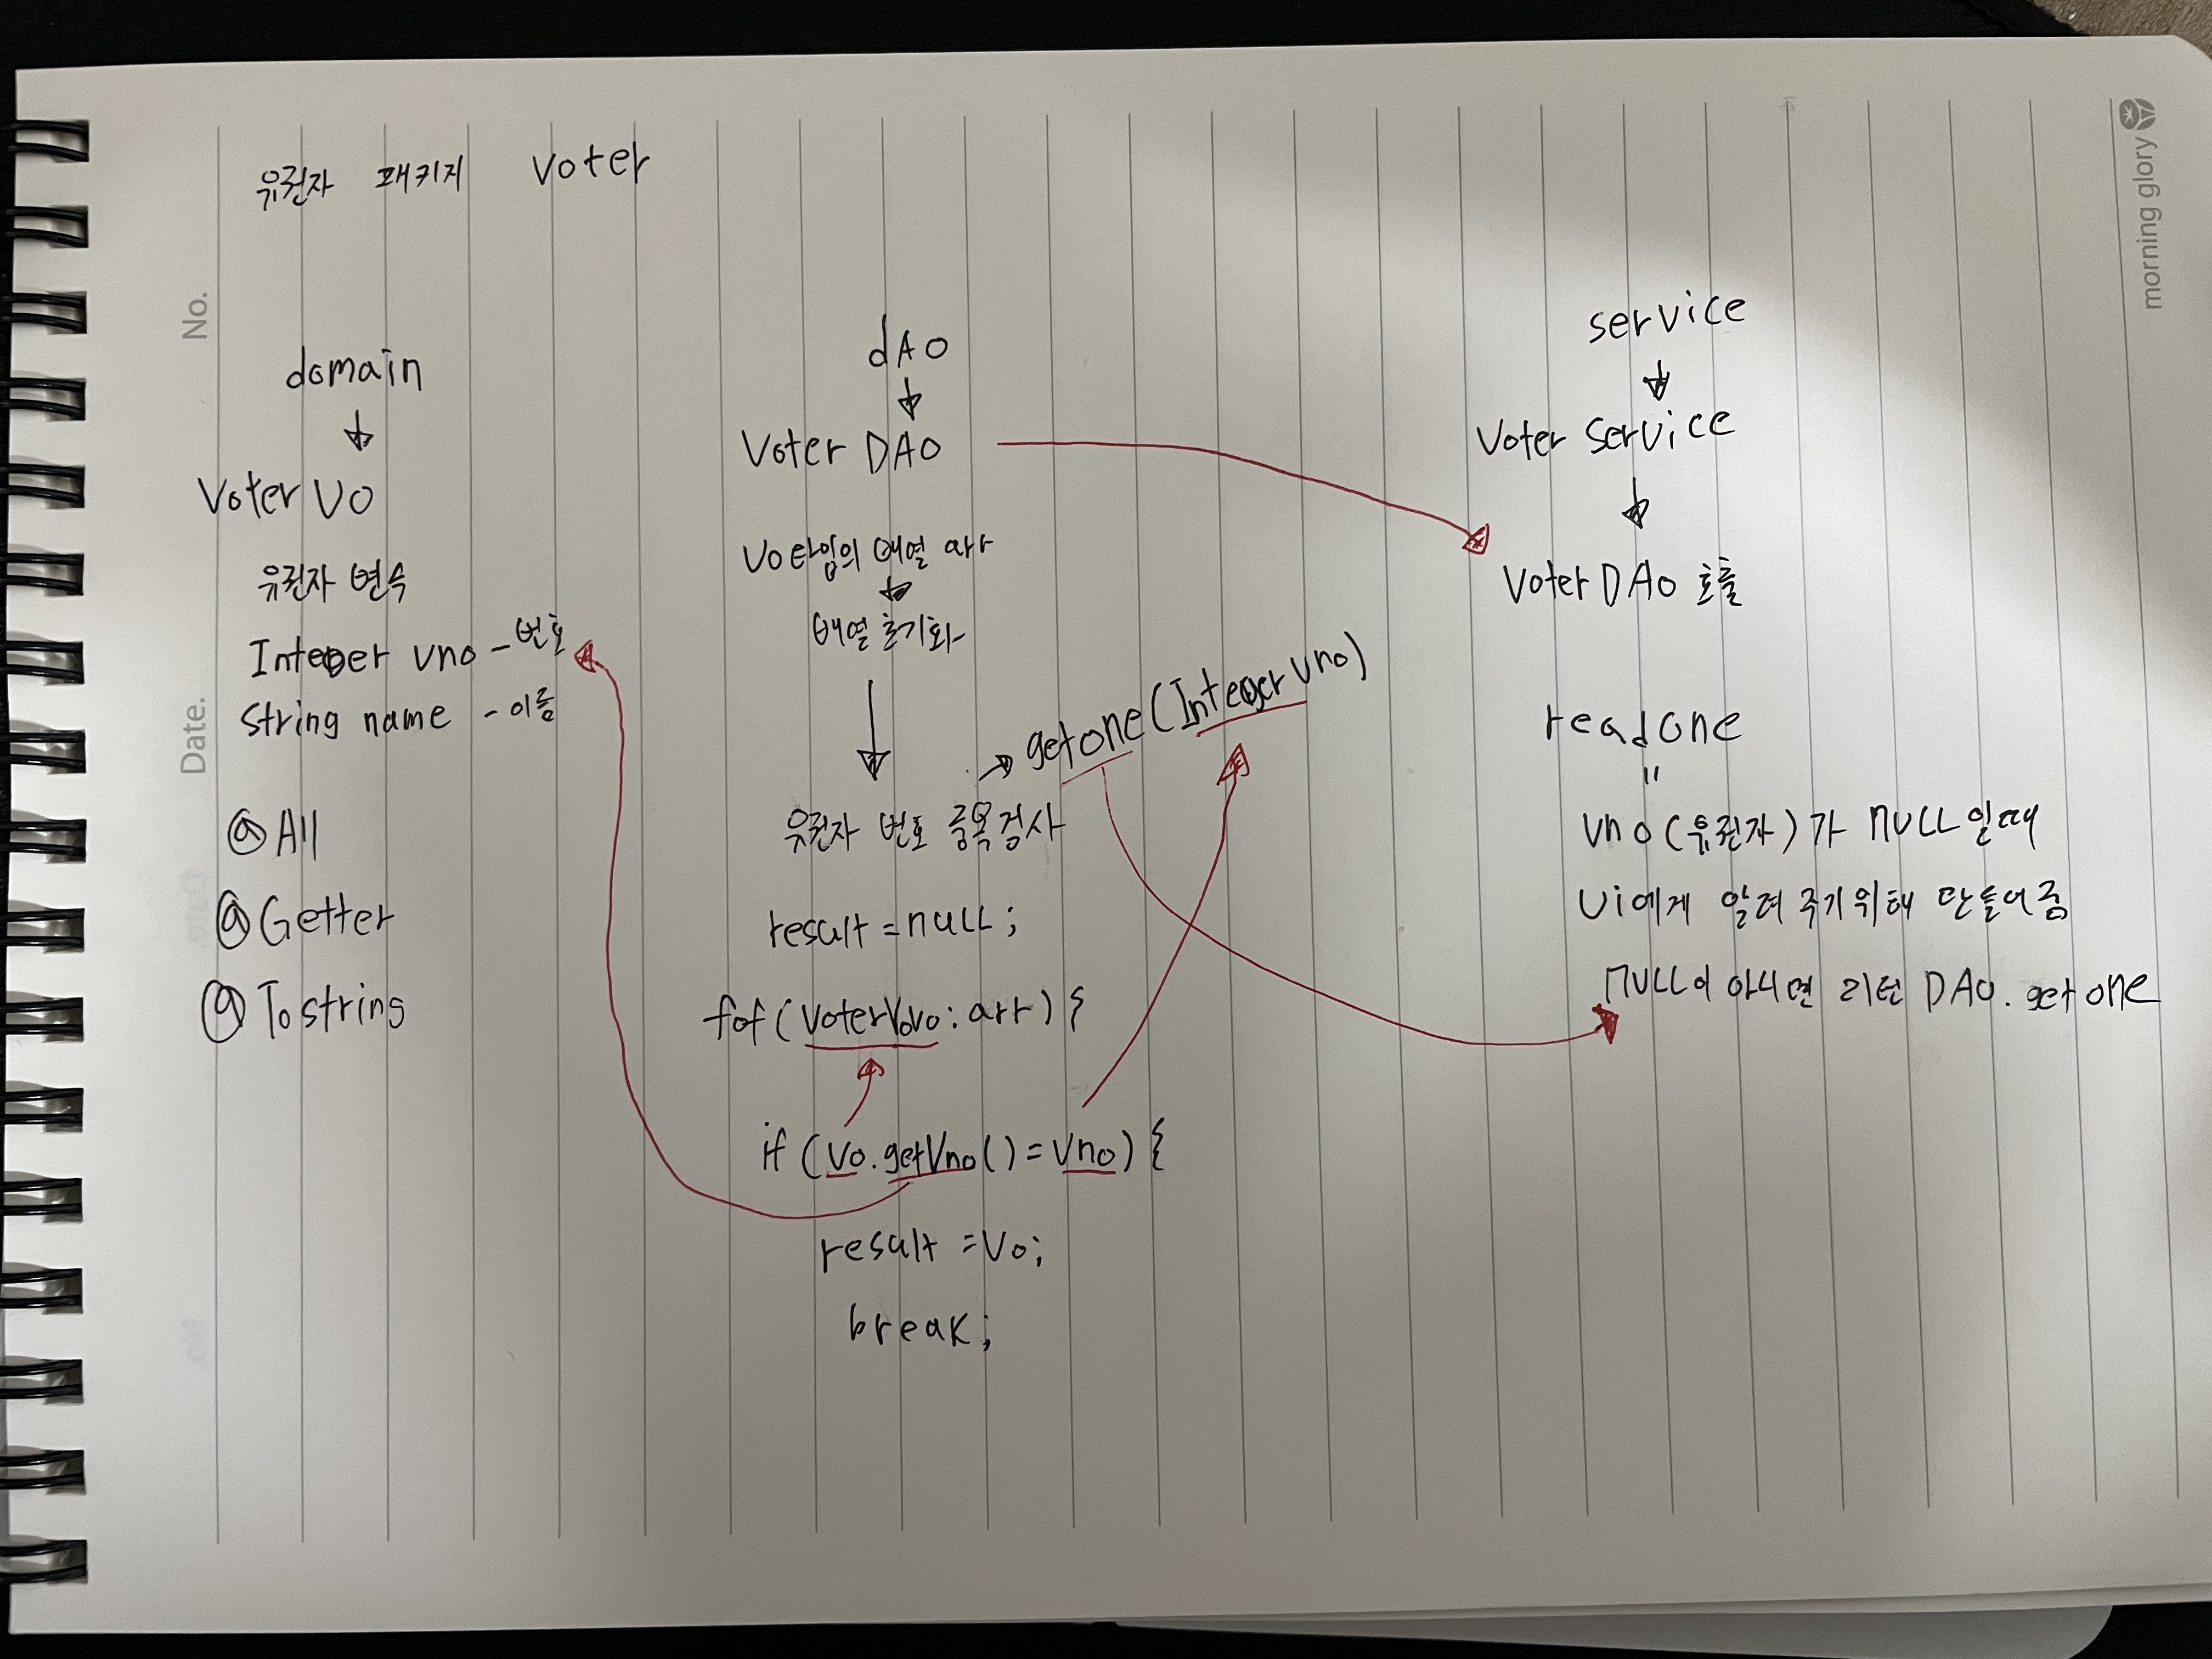 유권자 패키지 Voter
No.
Date.
morning glory
domain
Voter VO
유권자 변수
Integer vno - 번호
String name - 이름
@ All
@ Getter
@ Tostring
dAO
Voter DAO
Vo타입의 배열 arr
배열 초기화
getone (Integer vno)
유권자 번호 중복검사
result = null ;
fof ( VoterVo vo : arr ) {
if ( Vo. getVno () = Vno ) {
result = Vo;
break;
service
Voter Service
Voter DAO 호출
readone
"
vno (유권자) 가 NULL 일때
Ui에게 알려 주기위해 만들어줌
NULL이 아니면 리턴 DAO. getone